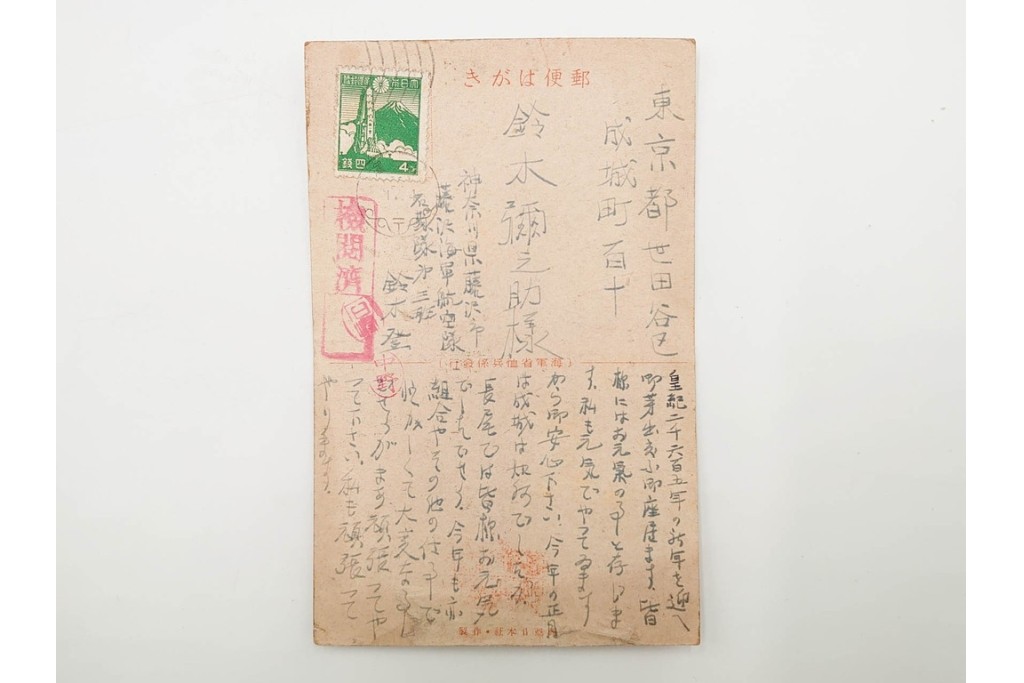 郵便はがき
東京都世田谷区
成城町百十
鈴木彌之助様
神奈川県藤沢市
藤沢海軍航空隊
第三
鈴木登
四銭
4
検閲済
中野
皇紀二千六百五年の新年を迎へ
御芽出度小御座居ます 皆
様にはお元気の事と存じま
す、私も元気でやってゐます
から御安心下さい、今年の正月
は成城は如何でしたか
長尾では皆様お元気
でしたでせう、今年も亦
組合やその他の仕事で
忙しくて大変な事
でせうがまあ頑張ってや
って下さい、私も頑張って
やります